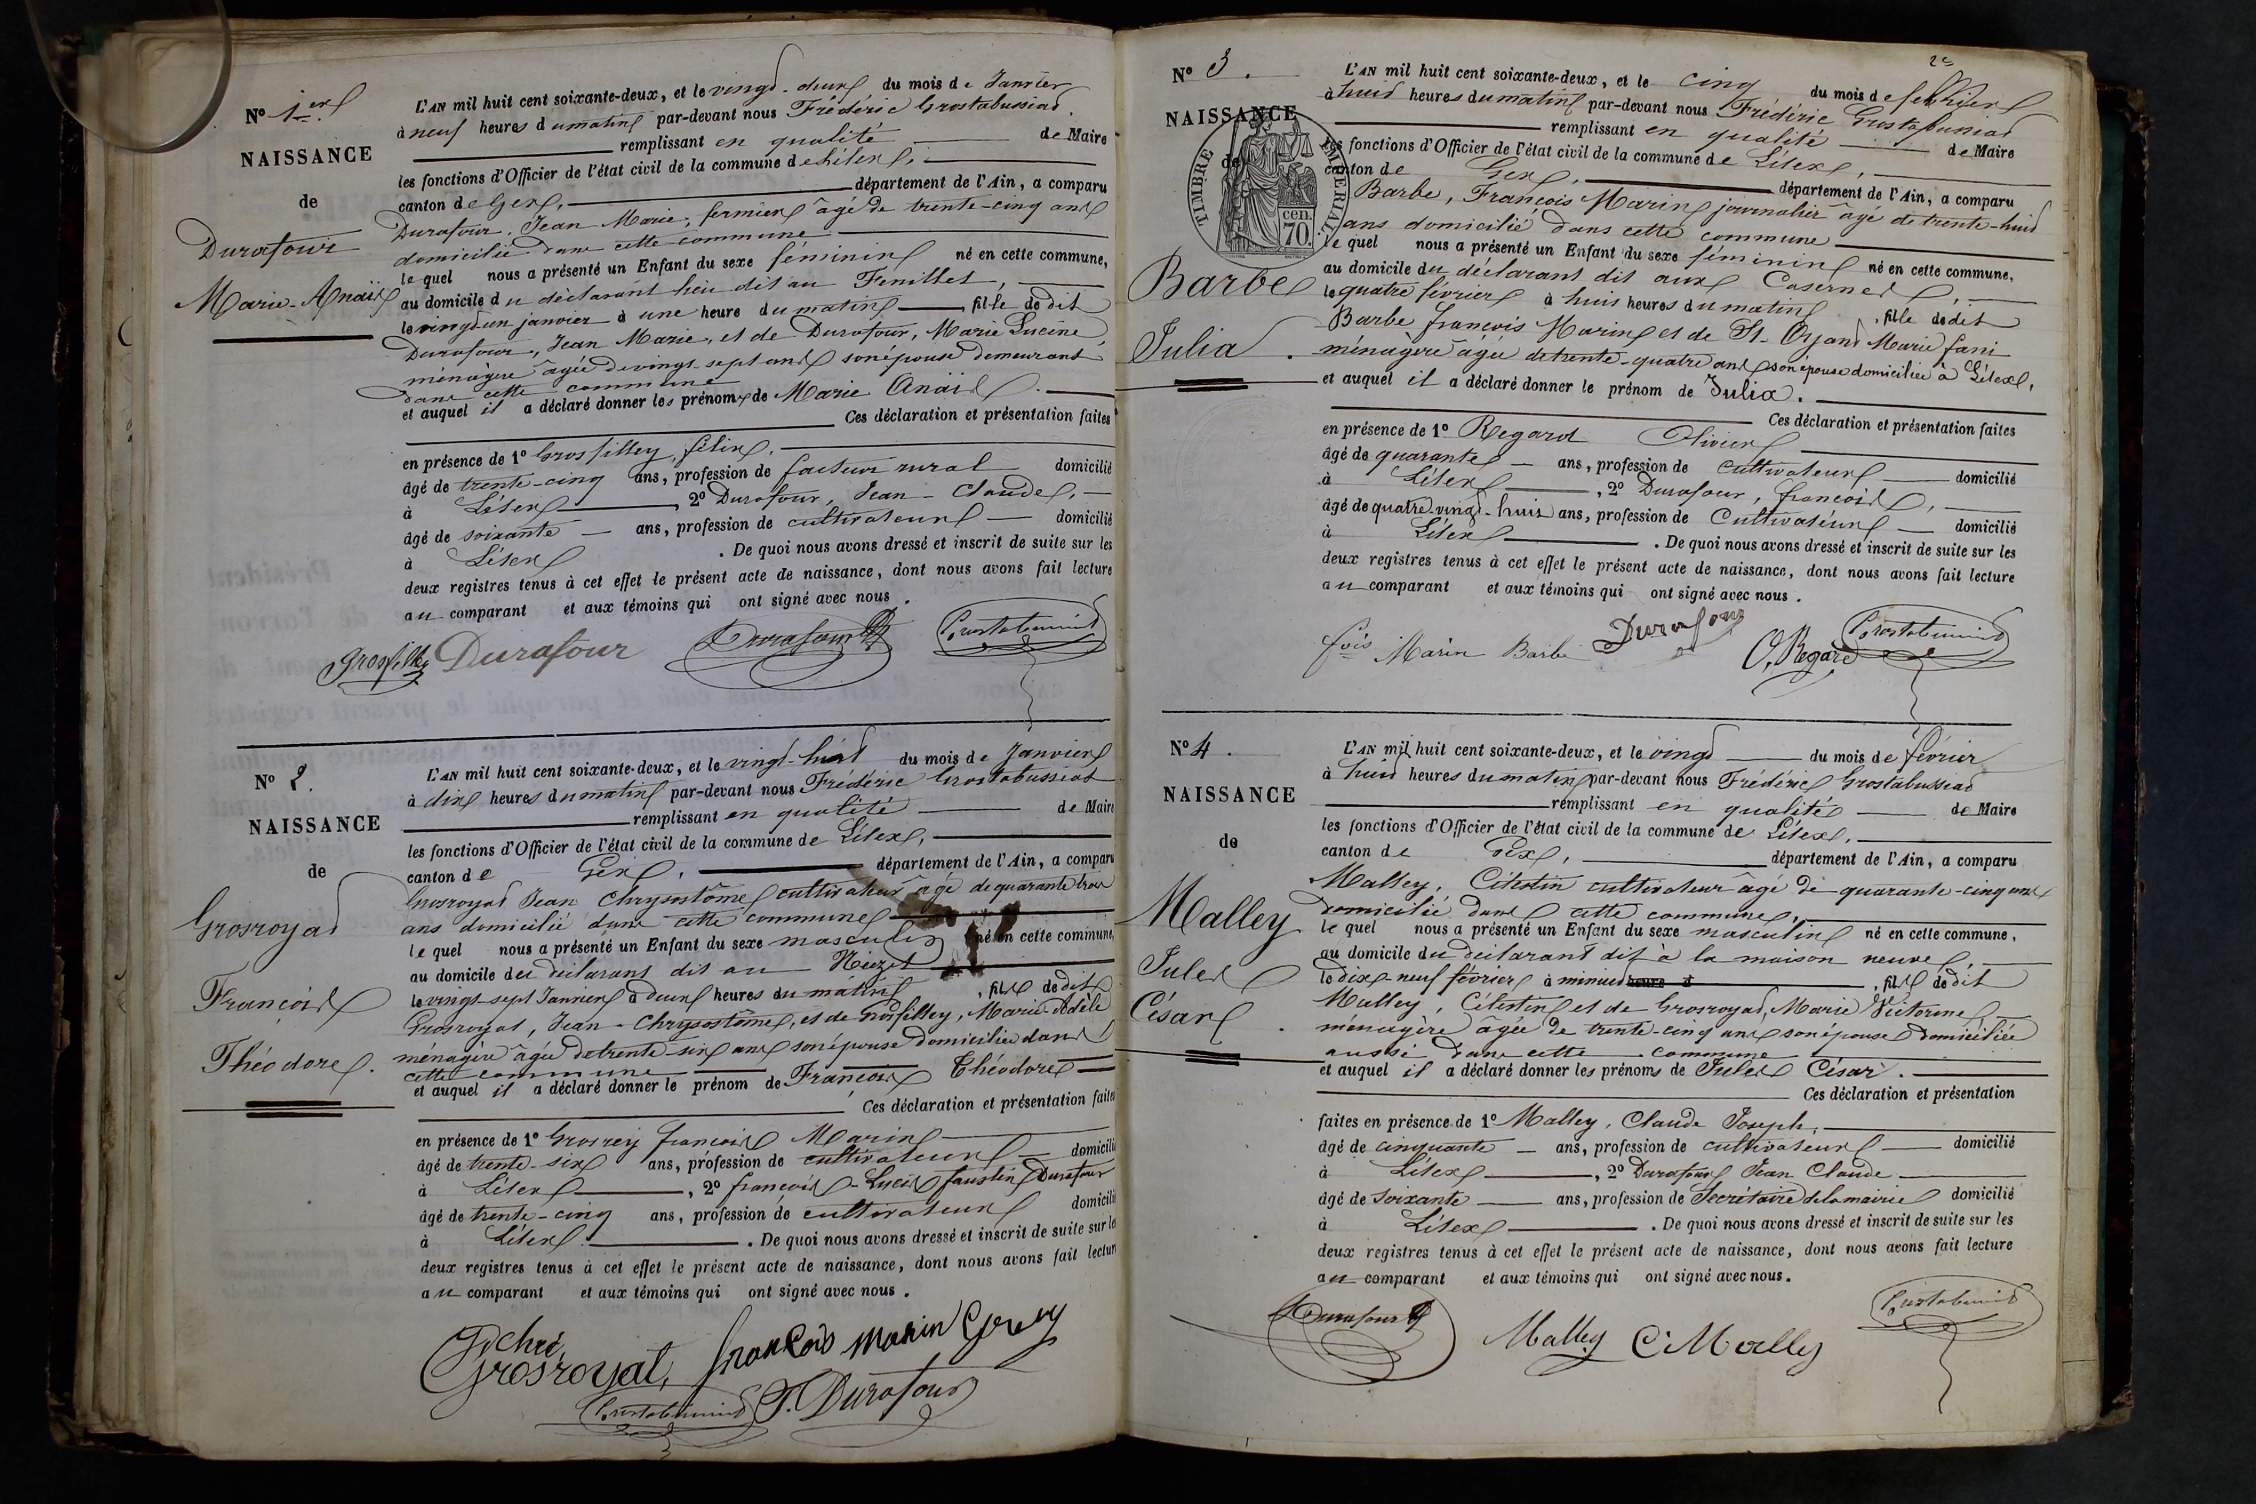 N° 1er
NAISSANCE
de
Durafour
Marie-Anaïs
L'AN mil huit cent soixante-deux, et le vingt-deux du mois de Janvier
à neuf heures du matin par-devant nous Frédéric Grostabussiat
remplissant en qualité de Maire
les fonctions d'Officier de l'état civil de la commune de Lélex,
canton de Gex, département de l'Ain, a comparu
Durafour, Jean Marie, fermier âgé de trente-cinq ans
domicilié dans cette commune
le quel nous a présenté un Enfant du sexe féminin né en cette commune,
au domicile du déclarant lieu dit au Fenillet,
le vingt un janvier à une heure du matin, fille de dit
Durafour, Jean Marie, et de Durafour, Marie Lucine
ménagère âgée de vingt-sept ans son épouse demeurant
dans cette commune
et auquel il a déclaré donner les prénoms de Marie Anaïs.
Ces déclaration et présentation faites
en présence de 1° Grosfilley, félix,
âgé de trente-cinq ans, profession de facteur rural domicilié
à Lélex, 2° Durafour, Jean-Claude,
âgé de soixante ans, profession de cultivateur domicilié
à Lélex. De quoi nous avons dressé et inscrit de suite sur les
deux registres tenus à cet effet le présent acte de naissance, dont nous avons fait lecture
au comparant et aux témoins qui ont signé avec nous.
Grosfilley Durafour Durafour Grostabussiat
N° 2.
NAISSANCE
de
Grosroyat
François
Théodore.
L'AN mil huit cent soixante-deux, et le vingt-huit du mois de Janvier
à dix heures du matin par-devant nous Frédéric Grostabussiat
remplissant en qualité de Maire
les fonctions d'Officier de l'état civil de la commune de Lélex,
canton de Gex, département de l'Ain, a comparu
Grosroyat Jean Chrysostôme cultivateur âgé de quarante trois
ans domicilié dans cette commune
le quel nous a présenté un Enfant du sexe masculin né en cette commune,
au domicile du déclarant dit au Niezet
le vingt-sept Janvier à deux heures du matin, fils de dit
Grosroyat, Jean-Chrysostôme, et de Grosfilley, Marie-Adèle
ménagère âgée de trente-six ans son épouse domiciliée dans
cette commune
et auquel il a déclaré donner le prénom de François Théodore
Ces déclaration et présentation faites
en présence de 1° Grosrey françois Marin
âgé de trente-six ans, profession de cultivateur domicilié
à Lélex, 2° françois-Lucis faustin Durafour
âgé de trente-cinq ans, profession de cultivateur domicilié
à Lélex. De quoi nous avons dressé et inscrit de suite sur les
deux registres tenus à cet effet le présent acte de naissance, dont nous avons fait lecture
au comparant et aux témoins qui ont signé avec nous.
Grosroyat, françois marin Grorey
Grostabussiat F. Durafour
N° 3.
NAISSANCE
de
TIMBRE IMPERIAL
cen. 70.
Barbe
Julia.
L'AN mil huit cent soixante-deux, et le cinq du mois de février
à huit heures du matin par-devant nous Frédéric Grostabussiat
remplissant en qualité de Maire
les fonctions d'Officier de l'état civil de la commune de Lélex,
canton de Gex, département de l'Ain, a comparu
Barbe, François Marin journalier âgé de trente-huit
ans domicilié dans cette commune
le quel nous a présenté un Enfant du sexe féminin né en cette commune,
au domicile du déclarant dit aux Casernes,
le quatre février à huit heures du matin, fille de dit
Barbe françois Marin et de St. Oyant Marie fani
ménagère âgée de trente-quatre ans son épouse domiciliée à Lélex,
et auquel il a déclaré donner le prénom de Julia.
Ces déclaration et présentation faites
en présence de 1° Regard Olivier
âgé de quarante ans, profession de cultivateur domicilié
à Lélex, 2° Durafour, françois,
âgé de quatre-vingt-huit ans, profession de Cultivateur domicilié
à Lélex. De quoi nous avons dressé et inscrit de suite sur les
deux registres tenus à cet effet le présent acte de naissance, dont nous avons fait lecture
au comparant et aux témoins qui ont signé avec nous.
fois Marin Barbe Durafour O. Regard Grostabussiat
N° 4.
NAISSANCE
de
Malley
Jules
César.
L'AN mil huit cent soixante-deux, et le vingt du mois de février
à huit heures du matin par-devant nous Frédéric Grostabussiat
remplissant en qualité de Maire
les fonctions d'Officier de l'état civil de la commune de Lélex,
canton de Gex, département de l'Ain, a comparu
Malley, Célestin cultivateur âgé de quarante-cinq ans
domicilié dans cette commune,
le quel nous a présenté un Enfant du sexe masculin né en cette commune,
au domicile du déclarant dit à la maison neuve,
le dix-neuf février à minuit heure d, fils de dit
Malley, Célestin et de Grosroyat, Marie Victorine
ménagère âgée de trente-cinq ans son épouse domiciliée
aussi dans cette commune
et auquel il a déclaré donner les prénoms de Jules César.
Ces déclaration et présentation
faites en présence de 1° Malley, Claude Joseph,
âgé de cinquante ans, profession de cultivateur domicilié
à Lélex, 2° Durafour Jean Claude
âgé de soixante ans, profession de Secrétaire de la mairie domicilié
à Lélex. De quoi nous avons dressé et inscrit de suite sur les
deux registres tenus à cet effet le présent acte de naissance, dont nous avons fait lecture
au comparant et aux témoins qui ont signé avec nous.
Durafour Malley C Mally Grostabussiat